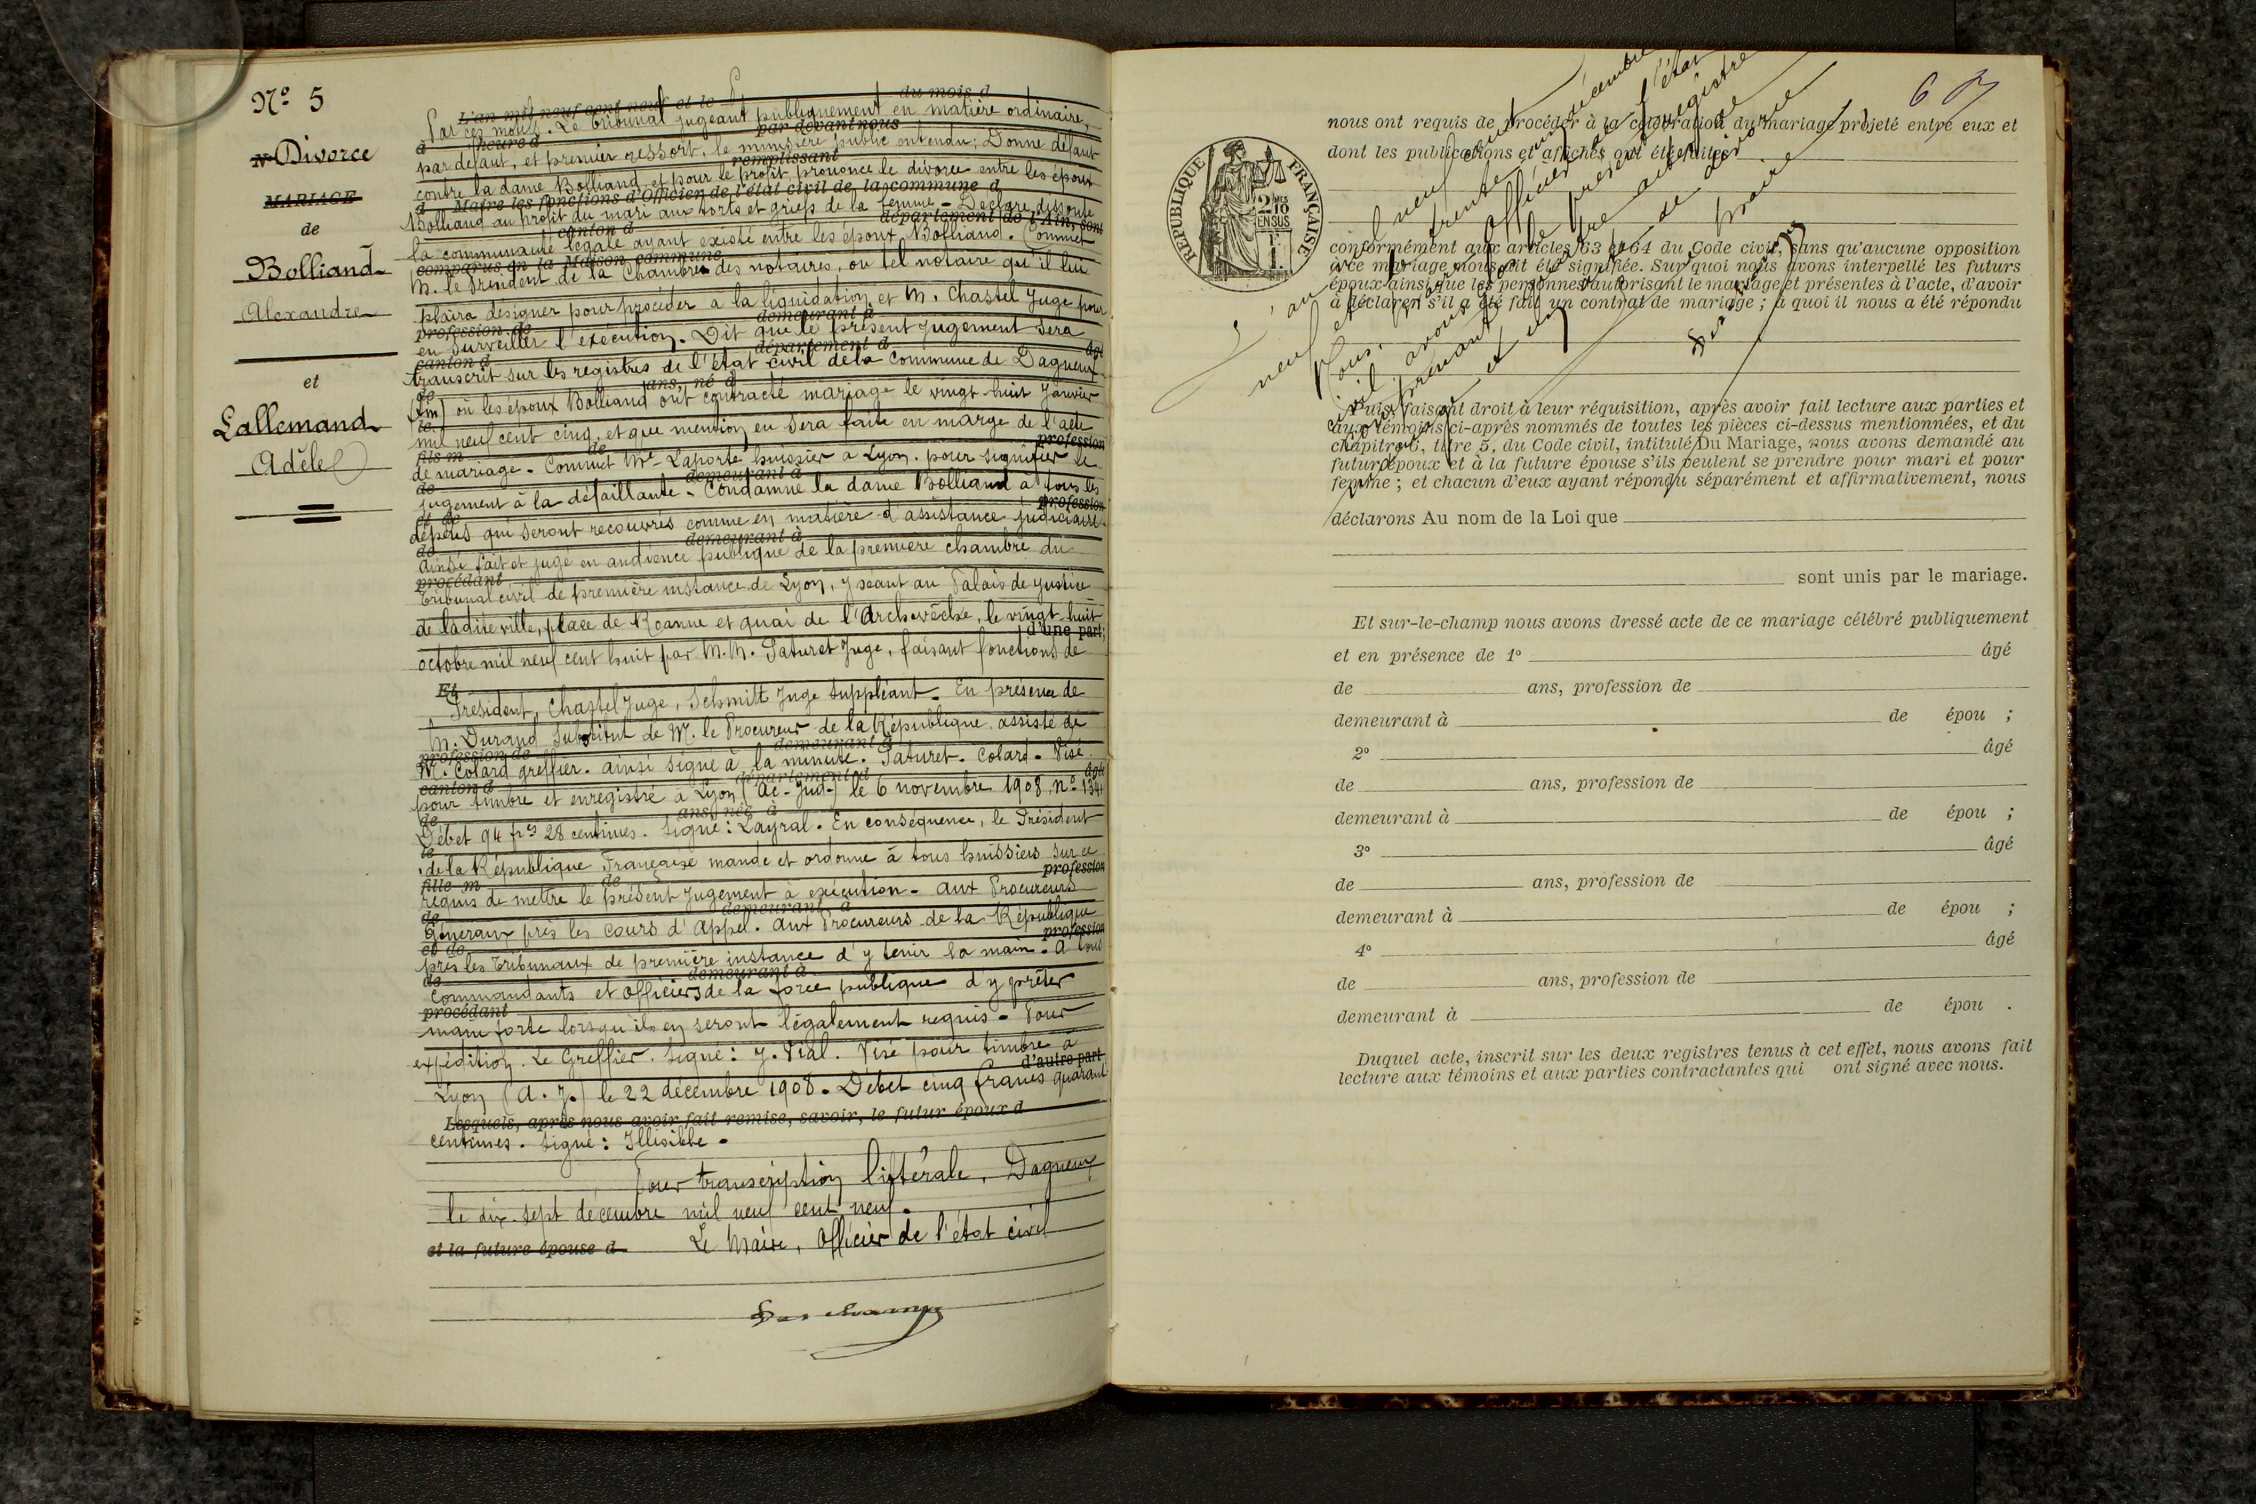 Nº 5
Divorce
MARIAGE
de
Bolliand
Alexandre
et
Lallemand
Adèle
L'an mil neuf cent neuf et le du mois d
Par ces motifs. Le Tribunal jugeant publiquement en matière ordinaire,
à heure d par devant nous
par défaut, et premier ressort, le ministère public entendu; Donne défaut
remplissant
contre la dame Bolliand et pour le profit prononce le divorce entre les époux
d Maire les fonctions d'Officier de l'état civil de la commune d
Bolliand au profit du mari aux torts et griefs de la femme - Déclare dissoute
canton d département de l'Ain, sont
la communauté légale ayant existé entre les époux Bolliand. Commet
comparus en la Maison commune
M. le Président de la Chambre des notaires, ou tel notaire qu'il lui
plaira désigner pour procéder à la liquidation et M. Chastel Juge pour
profession de demeurant à
en surveiller l'exécution. Dit que le présent jugement sera
canton d département d âgé
transcrit sur les registres de l'état civil de la commune de Dagneux
de ans, né à
(Ain) où les époux Bolliand ont contracté mariage le vingt-huit Janvier
le
mil neuf cent cinq, et que mention en sera faite en marge de l'acte
fils m de profession
de mariage. Commet Me Laporte huissier à Lyon, pour signifier le
de demeurant à
jugement à la défaillante. Condamne la dame Bolliand à tous les
et de profession
dépens qui seront recouvrés comme en matière d'assistance judiciaire.
de demeurant à
Ainsi fait et jugé en audience publique de la première chambre du
procédant
Tribunal civil de première instance de Lyon, y séant au Palais de justice
de ladite ville, place de Roanne et quai de l'Archevêché, le vingt-huit
d'une part;
octobre mil neuf cent huit par M.M. Paturet Juge, faisant fonctions de
Et
Président, Chastel Juge, Schmitt Juge suppléant. En présence de
M. Durand Substitut de Mr. le Procureur de la République assisté de
profession de demeurant à
M. Colard greffier. ainsi signé à la minute. Paturet. Colard. Visé
canton d département d âgée
pour timbre et enregistré à Lyon (Ac-Jud-) le 6 novembre 1908, nº 134
de ans, née à
Débet 94 frs 28 centimes. Signé: Layral. En conséquence, le Président
le
de la République Française mande et ordonne à tous huissiers sur ce
fille m de profession
requis de mettre le présent jugement à exécution. aux Procureurs
de demeurant à
Généraux près les Cours d'Appel. aux Procureurs de la République
et de profession
près les Tribunaux de première instance d'y tenir la main. A tous
de demeurant à
Commandants et officiers de la force publique d'y prêter
procédant
main forte lorsqu'ils en seront légalement requis. Pour
expédition. Le Greffier. Signé: J. Vial. Visé pour timbre à
d'autre part
Lyon (A. J.) le 22 décembre 1908. Débet cinq francs quarant
Lesquels, après nous avoir fait remise, savoir, le futur époux d
centimes. Signé: Illisible.
Pour transcription littérale, Dagneux
le dix-sept décembre mil neuf cent neuf.
et la future épouse d Le Maire, Officier de l'état civil
6
nous ont requis de procéder à la célébration du mariage projeté entre eux et
dont les publications et affiches ont été faites
RÉPUBLIQUE FRANÇAISE
2/10 EN SUS
1 F.
conformément aux articles 63 et 64 du Code civil, sans qu'aucune opposition
à ce mariage nous ait été signifiée. Sur quoi nous avons interpellé les futurs
époux ainsi que les personnes autorisant le mariage et présentes à l'acte, d'avoir
à déclarer s'il a été fait un contrat de mariage; à quoi il nous a été répondu
L'an mil neuf cent
neuf et le trente un décembre
Nous, Maire officier de l'état
civil, avons clos le présent registre
comprenant quatre actes de
mariage et un acte de divorce
Maire
Puis, faisant droit à leur réquisition, après avoir fait lecture aux parties et
aux témoins ci-après nommés de toutes les pièces ci-dessus mentionnées, et du
chapitre 6, titre 5, du Code civil, intitulé Du Mariage, nous avons demandé au
futur époux et à la future épouse s'ils veulent se prendre pour mari et pour
femme; et chacun d'eux ayant répondu séparément et affirmativement, nous
déclarons Au nom de la Loi que
sont unis par le mariage.
Et sur-le-champ nous avons dressé acte de ce mariage célébré publiquement
et en présence de 1º âgé
de ans, profession de
demeurant à de épou ;
2º âgé
de ans, profession de
demeurant à de épou ;
3º âgé
de ans, profession de
demeurant à de épou ;
4º âgé
de ans, profession de
demeurant à de épou .
Duquel acte, inscrit sur les deux registres tenus à cet effet, nous avons fait
lecture aux témoins et aux parties contractantes qui ont signé avec nous.